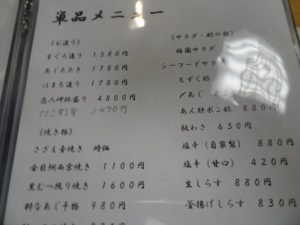 単品メニュー
(お造り)
まぐろ造り 1580円
あじたたき 1780円
はまち造り 1780円
恋人岬姿盛り 4800円
1470円
(焼き物)
さざえ壷焼き 時価
金目朝西京焼き 1100円
黒むつ照り焼き 1600円
特吉あじ干物 980円
(サラダ・酢の物)
梅園サラダ
シーフードサラダ
もずく酢
〆あじ
あん肝ポン酢 880円
板わさ 650円
塩辛(自家製) 880円
塩辛(甘口) 420円
生しらす 880円
釜揚げしらす 830円